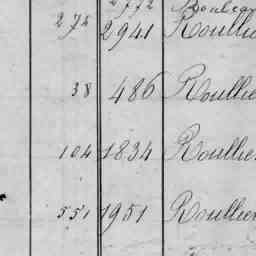 2772 Boulean
275 2941 Roullie
38 486 Roullie
104 1834 Roullie
551 1951 Roullier